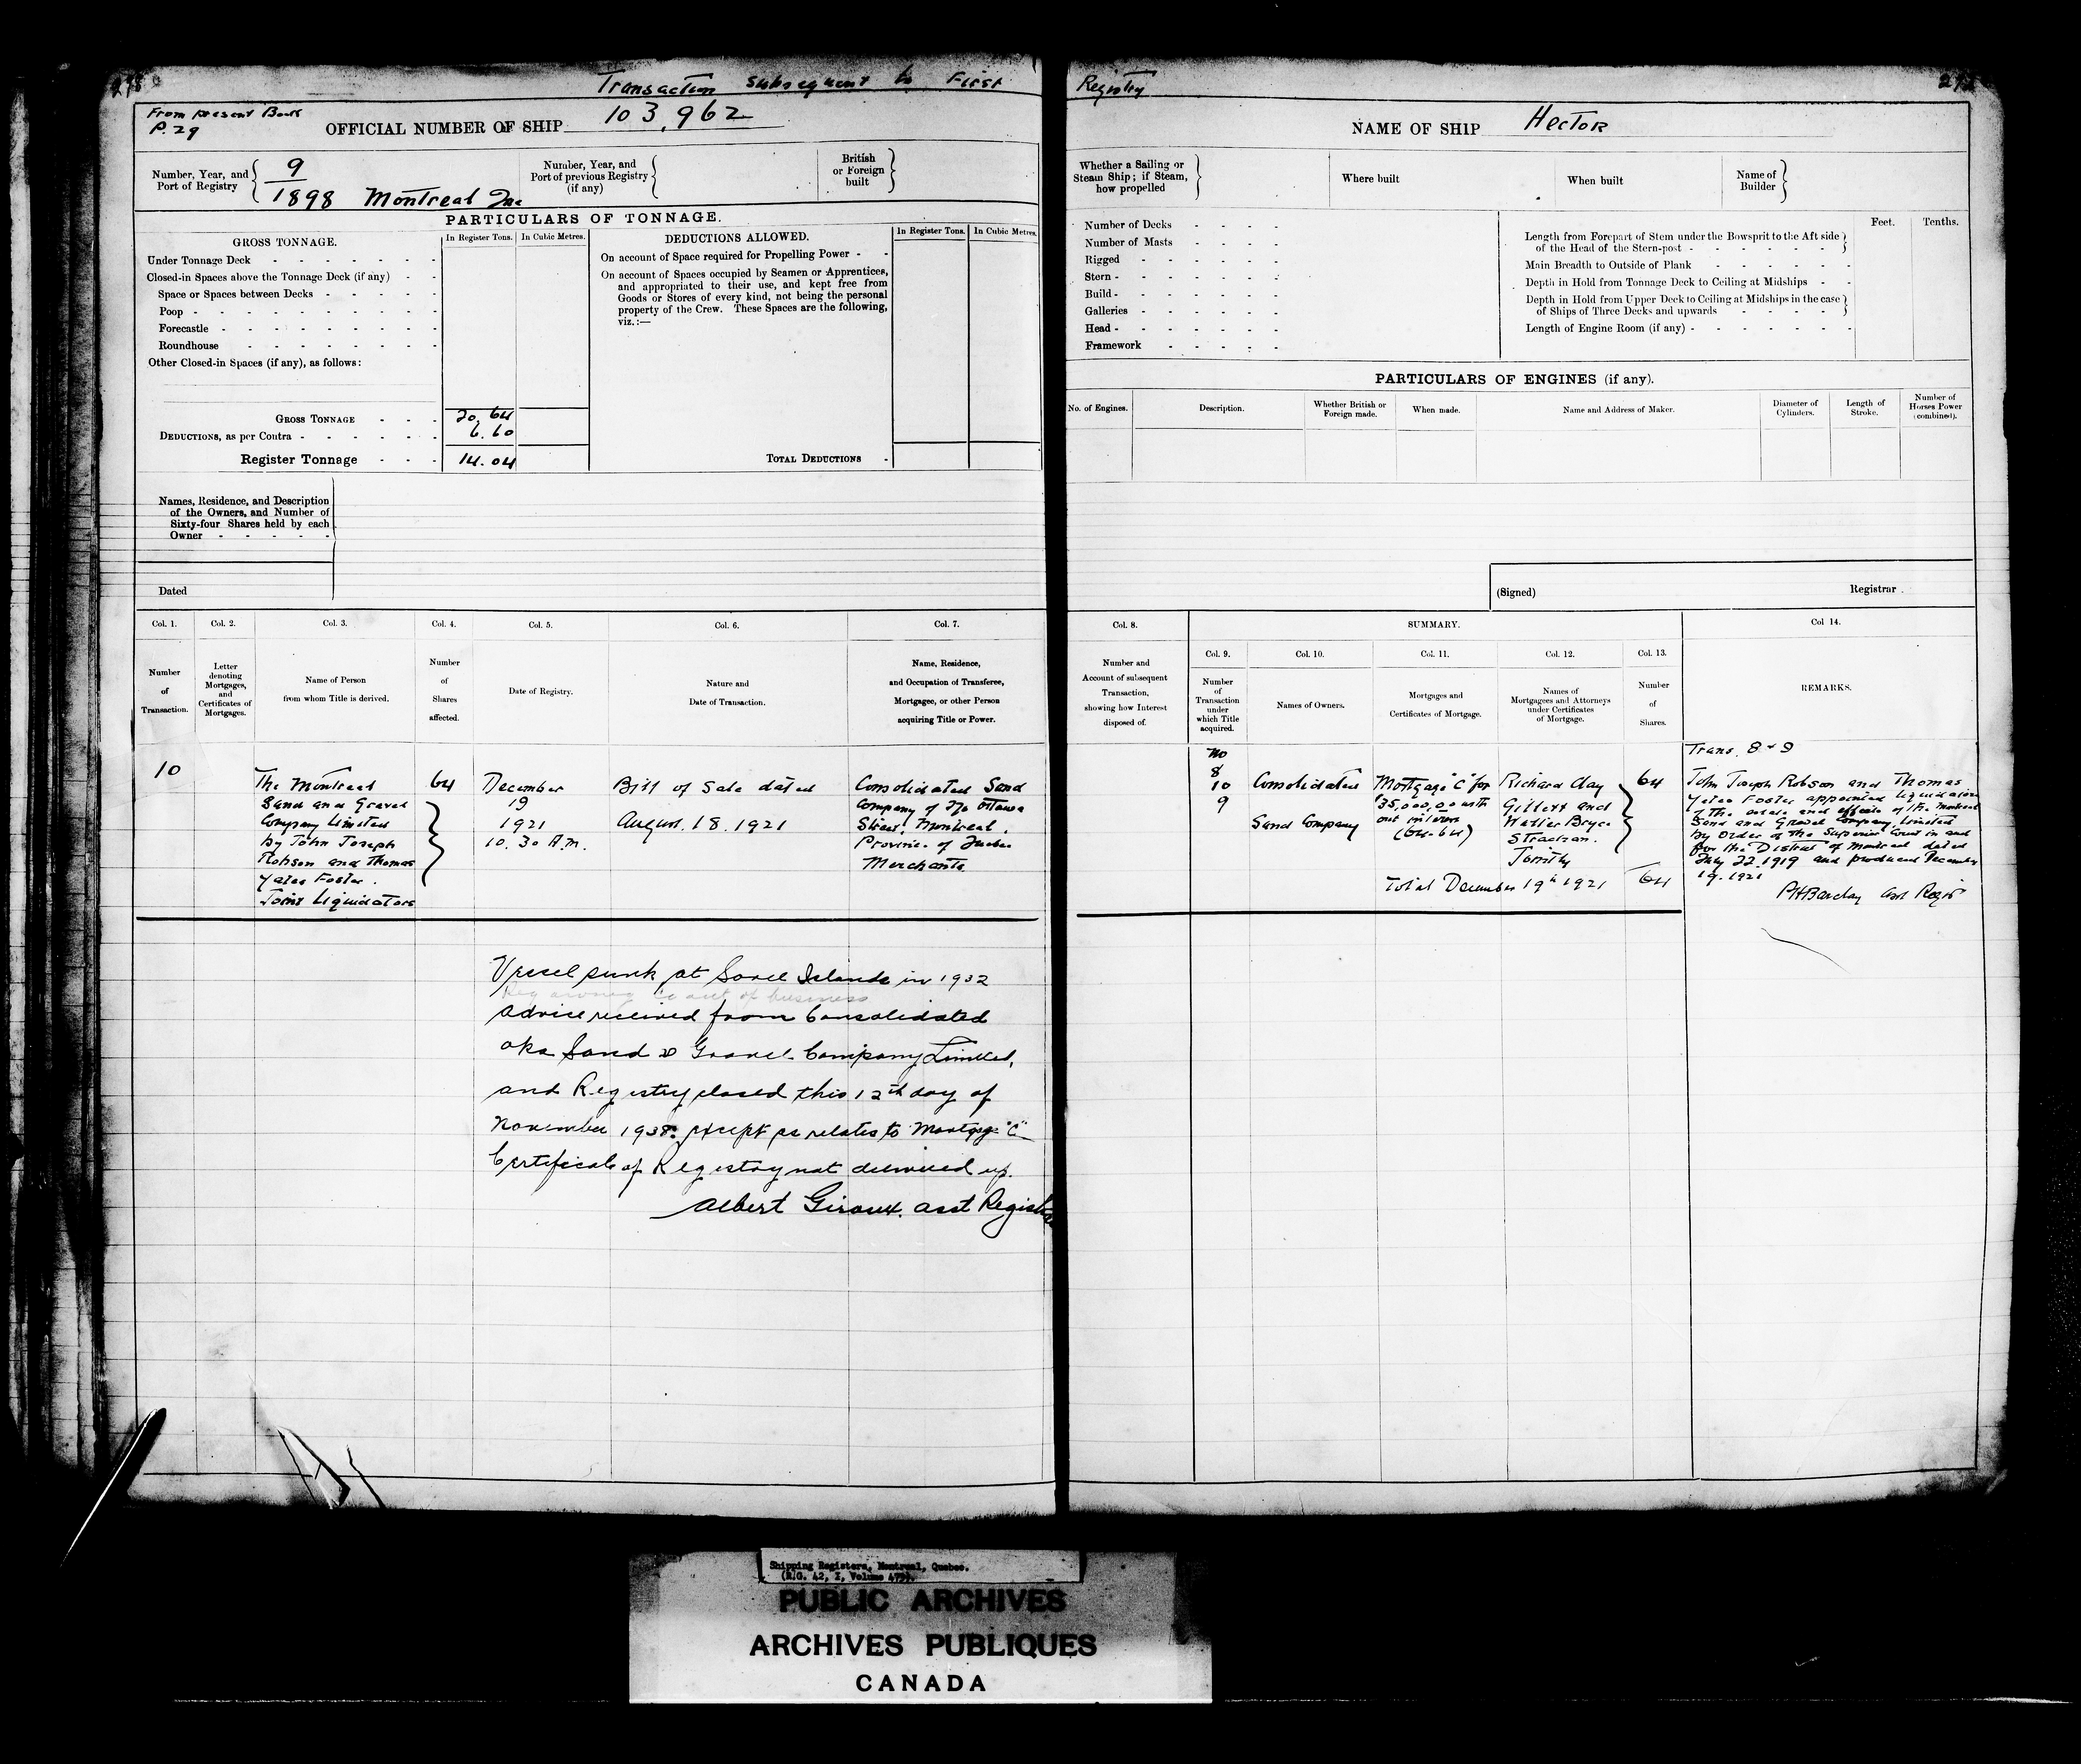 Transaction subsequent to First
Registry
From present Book
P. 29
OFFICIAL NUMBER OF SHIP 103,962
NAME OF SHIP Hector
Number, Year, and
Port of Registry
9
1898 Montreal Que
Number, Year, and
Port of previous Registry
(if any)
British
or Foreign
built
Whether a Sailing or
Steam Ship; if Steam,
how propelled
Where built
When built
Name of
Builder
PARTICULARS OF TONNAGE.
GROSS TONNAGE.
In Register Tons.
In Cubic Metres.
Under Tonnage Deck - - - - - -
Closed-in Spaces above the Tonnage Deck (if any) - -
Space or Spaces between Decks - - - - -
Poop - - - - - - - - -
Forecastle - - - - - - - -
Roundhouse - - - - - - -
Other Closed-in Spaces (if any), as follows:
GROSS TONNAGE - - - 20.64
DEDUCTIONS, as per Contra - - - - - - 6.60
Register Tonnage - - - 14.04
DEDUCTIONS ALLOWED.
In Register Tons.
In Cubic Metres.
On account of Space required for Propelling Power - -
On account of Spaces occupied by Seamen or Apprentices,
and appropriated to their use, and kept free from
Goods or Stores of every kind, not being the personal
property of the Crew. These Spaces are the following,
viz.:—
TOTAL DEDUCTIONS -
Number of Decks - - - -
Number of Masts - - - -
Rigged - - - - -
Stern - - - - - -
Build - - - - - -
Galleries - - - - -
Head - - - - - -
Framework - - - - -
Feet.
Tenths.
Length from Forepart of Stem under the Bowsprit to the Aft side
of the Head of the Stern-post - - - - - -
Main Breadth to Outside of Plank - - - - - -
Depth in Hold from Tonnage Deck to Ceiling at Midships - -
Depth in Hold from Upper Deck to Ceiling at Midships in the case
of Ships of Three Decks and upwards - - - - -
Length of Engine Room (if any) - - - - - - -
PARTICULARS OF ENGINES (if any).
No. of Engines.
Description.
Whether British or
Foreign made.
When made.
Name and Address of Maker.
Diameter of
Cylinders.
Length of
Stroke.
Number of
Horses Power
(combined).
Names, Residence, and Description
of the Owners, and Number of
Sixty-four Shares held by each
Owner - - - - -
Dated
(Signed)
Registrar.
Col. 1.
Number
of
Transaction.
Col. 2.
Letter
denoting
Mortgages,
and
Certificates of
Mortgages.
Col. 3.
Name of Person
from whom Title is derived.
Col. 4.
Number
of
Shares
affected.
Col. 5.
Date of Registry.
Col. 6.
Nature and
Date of Transaction.
Col. 7.
Name, Residence,
and Occupation of Transferee,
Mortgagee, or other Person
acquiring Title or Power.
Col. 8.
Number and
Account of subsequent
Transaction,
showing how Interest
disposed of.
SUMMARY.
Col. 9.
Number
of
Transaction
under
which Title
acquired.
Col. 10.
Names of Owners.
Col. 11.
Mortgages and
Certificates of Mortgage.
Col. 12.
Names of
Mortgagees and Attorneys
under Certificates
of Mortgage.
Col. 13.
Number
of
Shares.
Col 14.
REMARKS.
10
The Montreal
Sand and Gravel
Company Limited
by John Joseph
Robson and Thomas
Yates Foster.
Joint Liquidators
64
December
19
1921
10.30 A.M.
Bill of Sale dated
August 18. 1921
Consolidated Sand
Company of Ottawa
Street, Montreal.
Province of Quebec
Merchants
No
8
10
9
Consolidated
Sand Company
Mortgage "C" for
$35,000.00 with
out interest
(64-64)
Richard Clay
Gillett and
Walter Bryce
Strachan.
Jointly
64
Total December 19th 1921 64
Trans. 8 & 9
John Joseph Robson and Thomas
Yates Foster appointed liquidators
of the estate and effects of the Montreal
Sand and Gravel Company Limited
by Order of the Superior Court in and
for the District of Montreal dated
July 22. 1919 and produced December
19. 1921
PHBarclay Asst Regis
Vessel sunk at Sorel Islands in 1932
Reg owners Co out of business
Advice received from Consolidated
Oka Sand & Gravel Company Limited,
and Registry closed this 12th day of
November 1938. except as relates to Mortgage "C"
Certificate of Registry not delivered up.
Albert Giroux. asst Registrar
Shipping Registers, Montreal, Quebec.
(R.G. 42, I, Volume 475).
PUBLIC ARCHIVES
ARCHIVES PUBLIQUES
CANADA